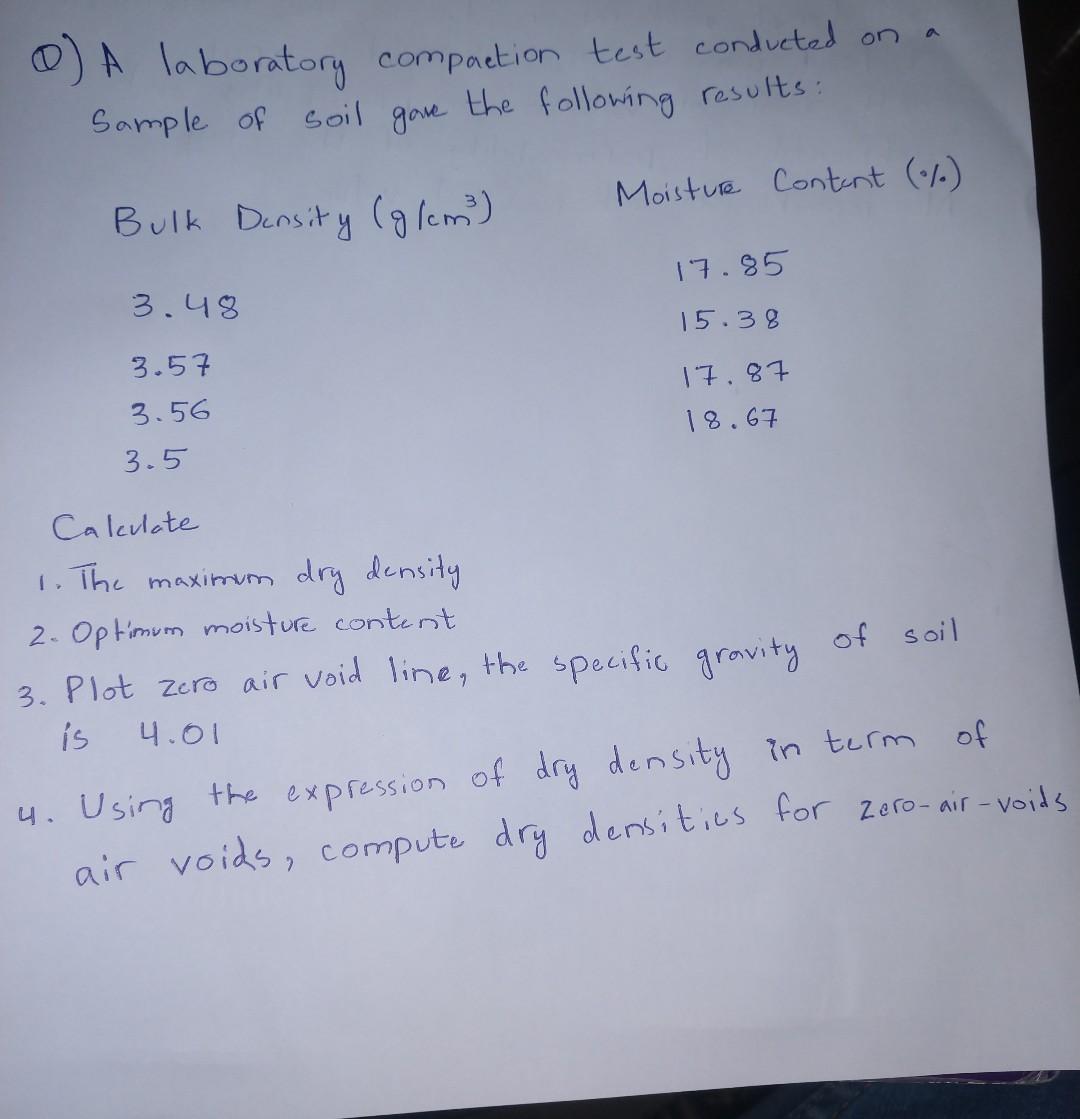 Q) A laboratory compaction test conducted on a
Sample of soil gave the following results:
Bulk Density (g/cm³) Moisture Content (%)
3.48 17.85
3.57 15.38
3.56 17.87
3.5 18.67
Calculate
1. The maximum dry density
2. Optimum moisture content
3. Plot zero air void line, the specific gravity of soil
is 4.01
4. Using the expression of dry density in term of
air voids, compute dry densities for zero-air-voids